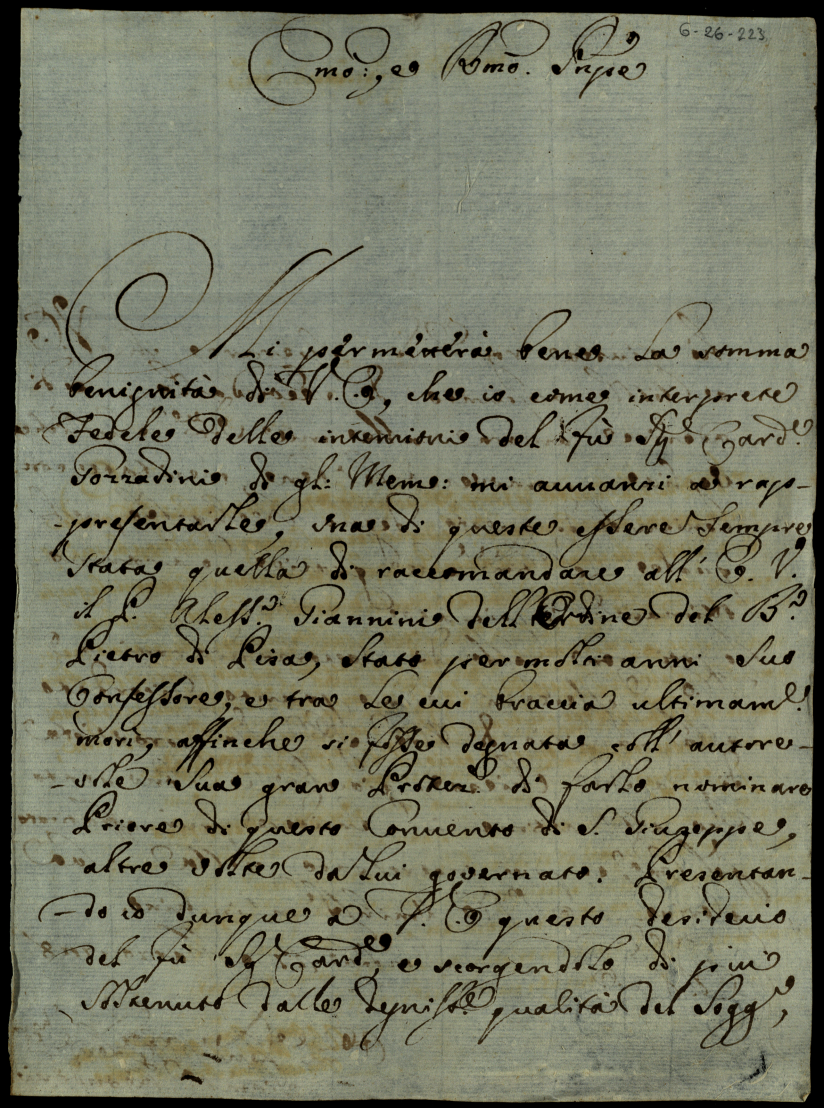 6-26-223
Emo:, e Rmo. Pnpe
Mi permetterà bene la somma
benignità di V. E., che io come interprete
Fedele delle intentioni del fù Sig Card.e
Gozzadini di gl: Mem: mi auuanzi a rap-
-presentarle, una di queste essere sempre
stata quella di raccomandare all' E. V.
il P. Aless.o Giannini dell'Ordine del B.o
Pietro di Pisa, stato per molti anni suo
Confessore, e tra le cui braccia ultimam.e
morì, affinche si fosse degnata coll' autore-
-uole sua gran Protez.e di farlo nominare
Priore di questo Conuento di S. Giuseppe,
altre uolte da lui gouernato. Presentan-
-do io dunque a V. E. questo desiderio
del fù Sig Card.e, e scorgendolo di piu
sostenuto dalle degniss.e qualità del Sogg.o,